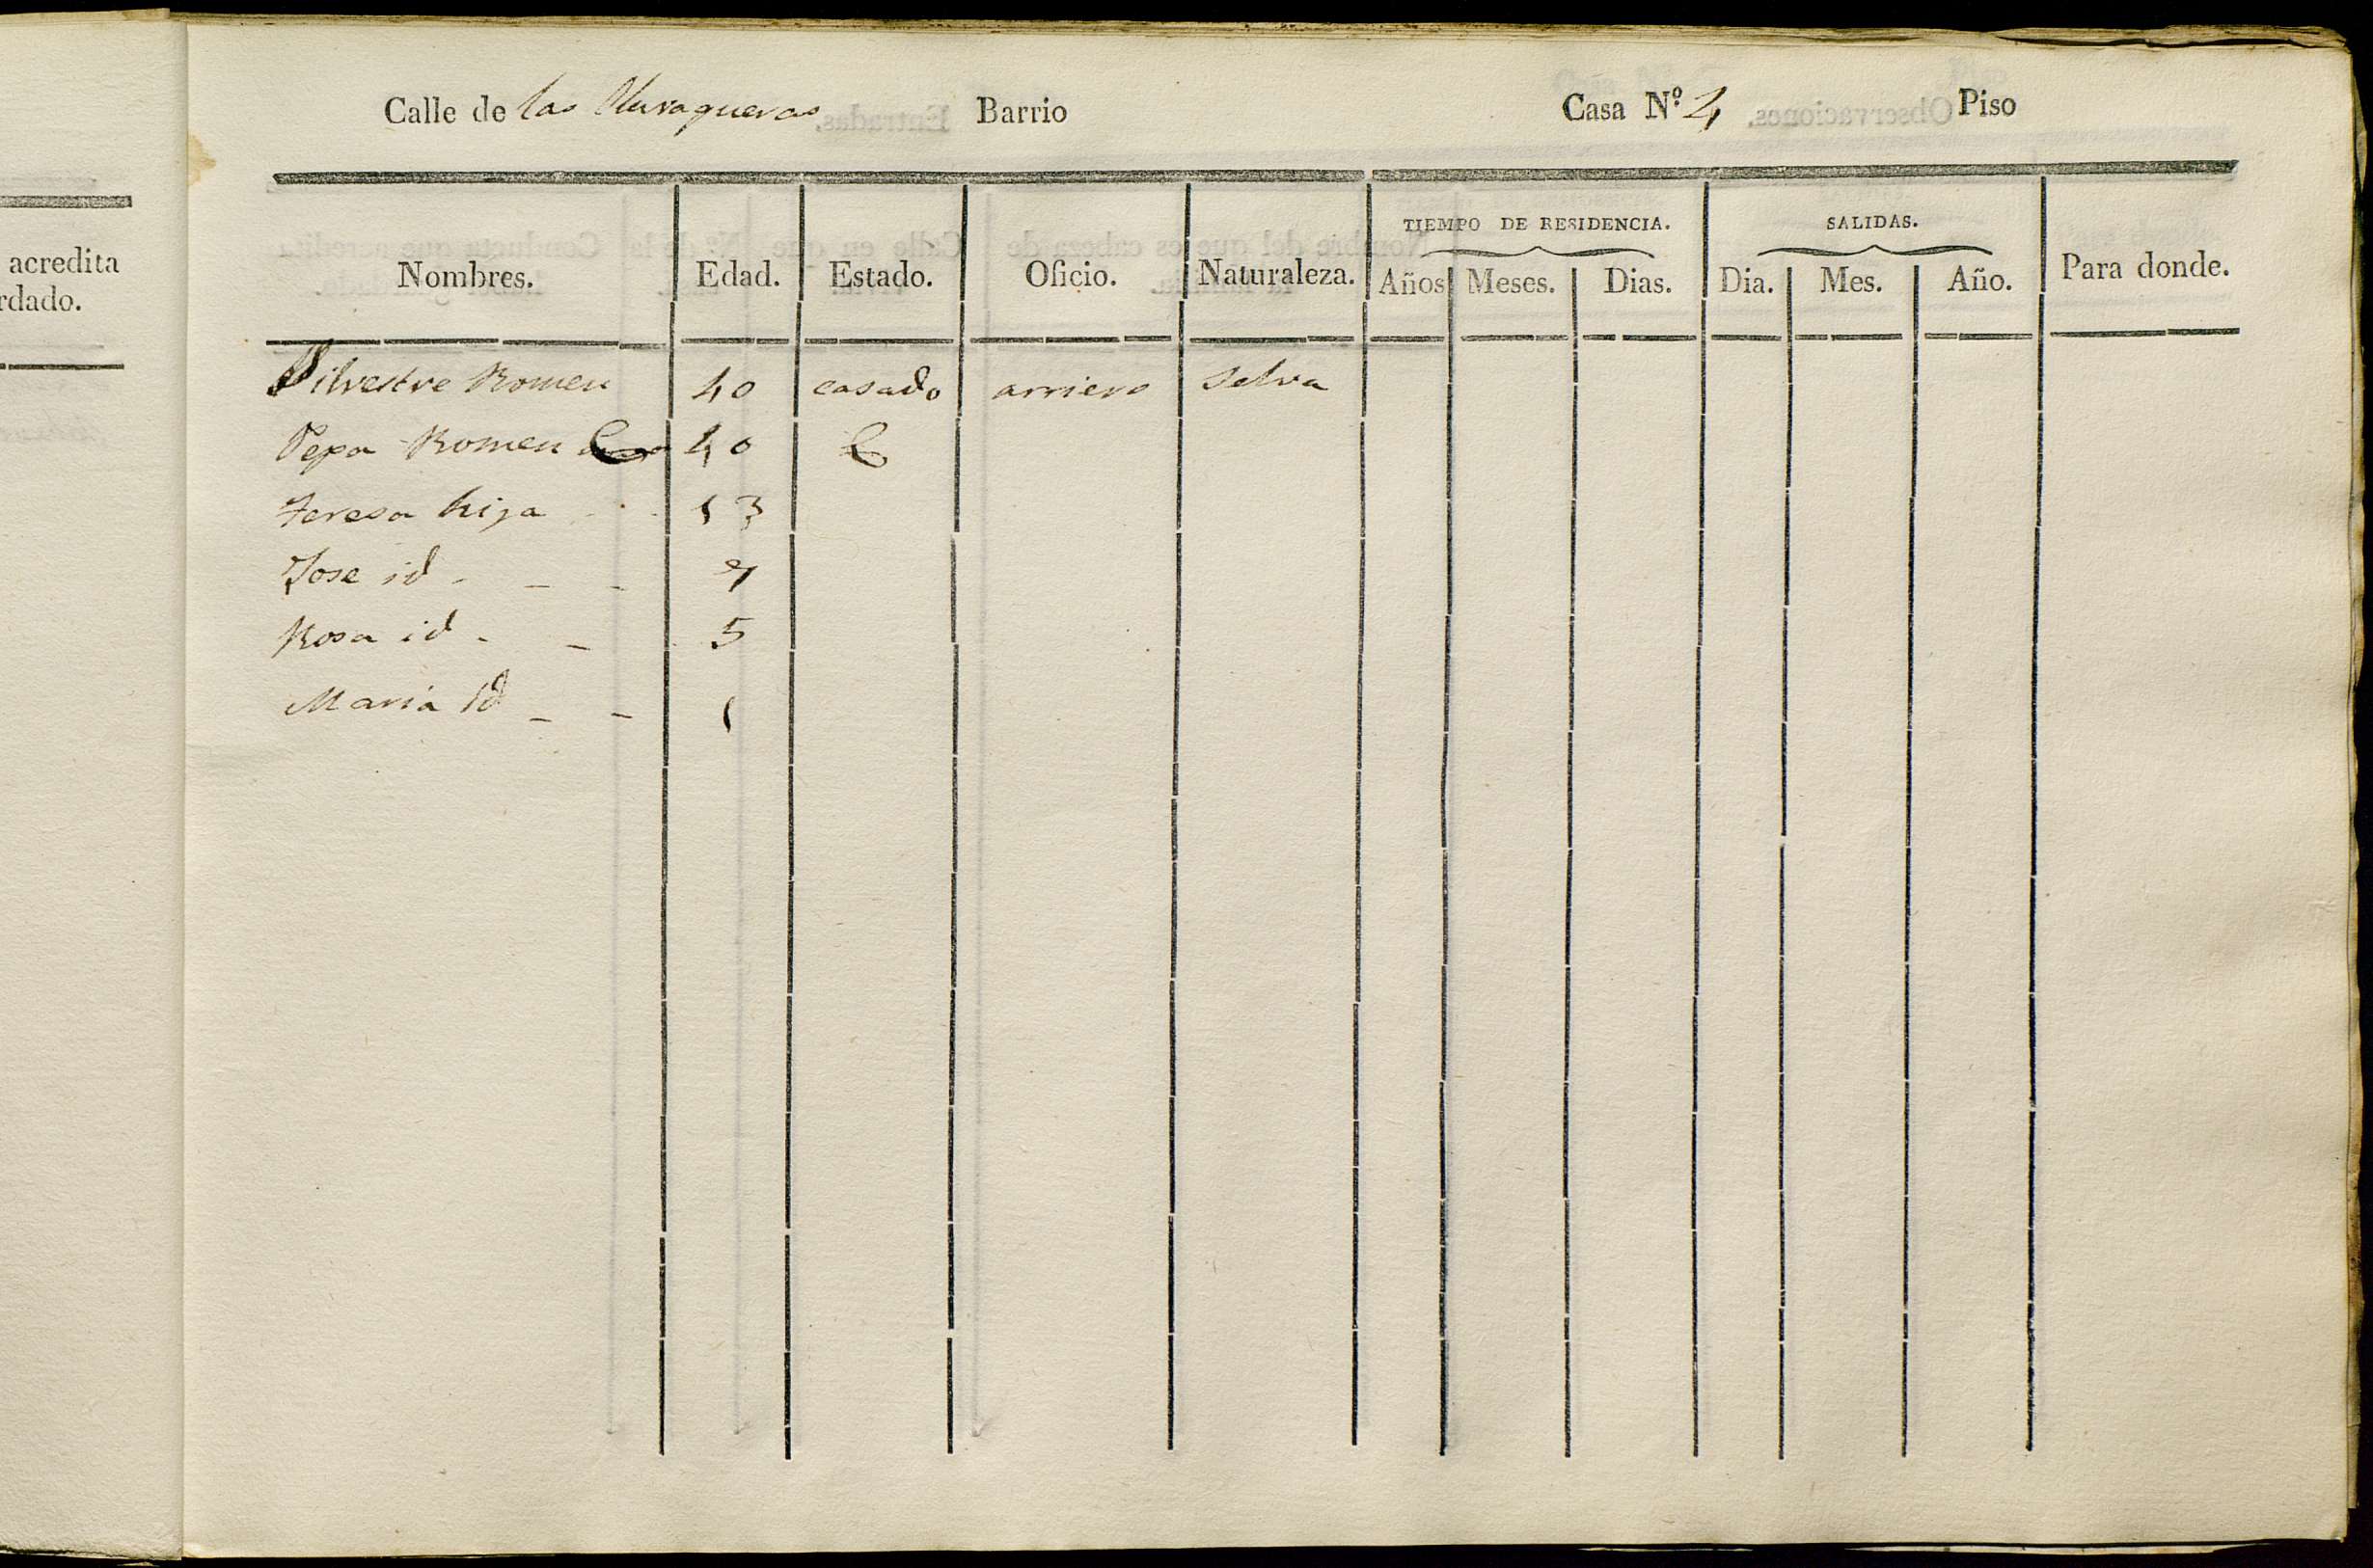 acredita
rdado.
Calle de las Barrio Casa Nº. 4 Piso
Nombres. Edad. Estado. Oficio. Naturaleza. TIEMPO DE RESIDENCIA. Años Meses. Dias. SALIDAS. Dia. Mes. Año. Para donde.
Silvestre Romeu 40 casado arriero Selva
Pepa Romeu 40 C
Teresa hija 13
Jose id - - - 7
Rosa id - - 5
Maria id - - 1